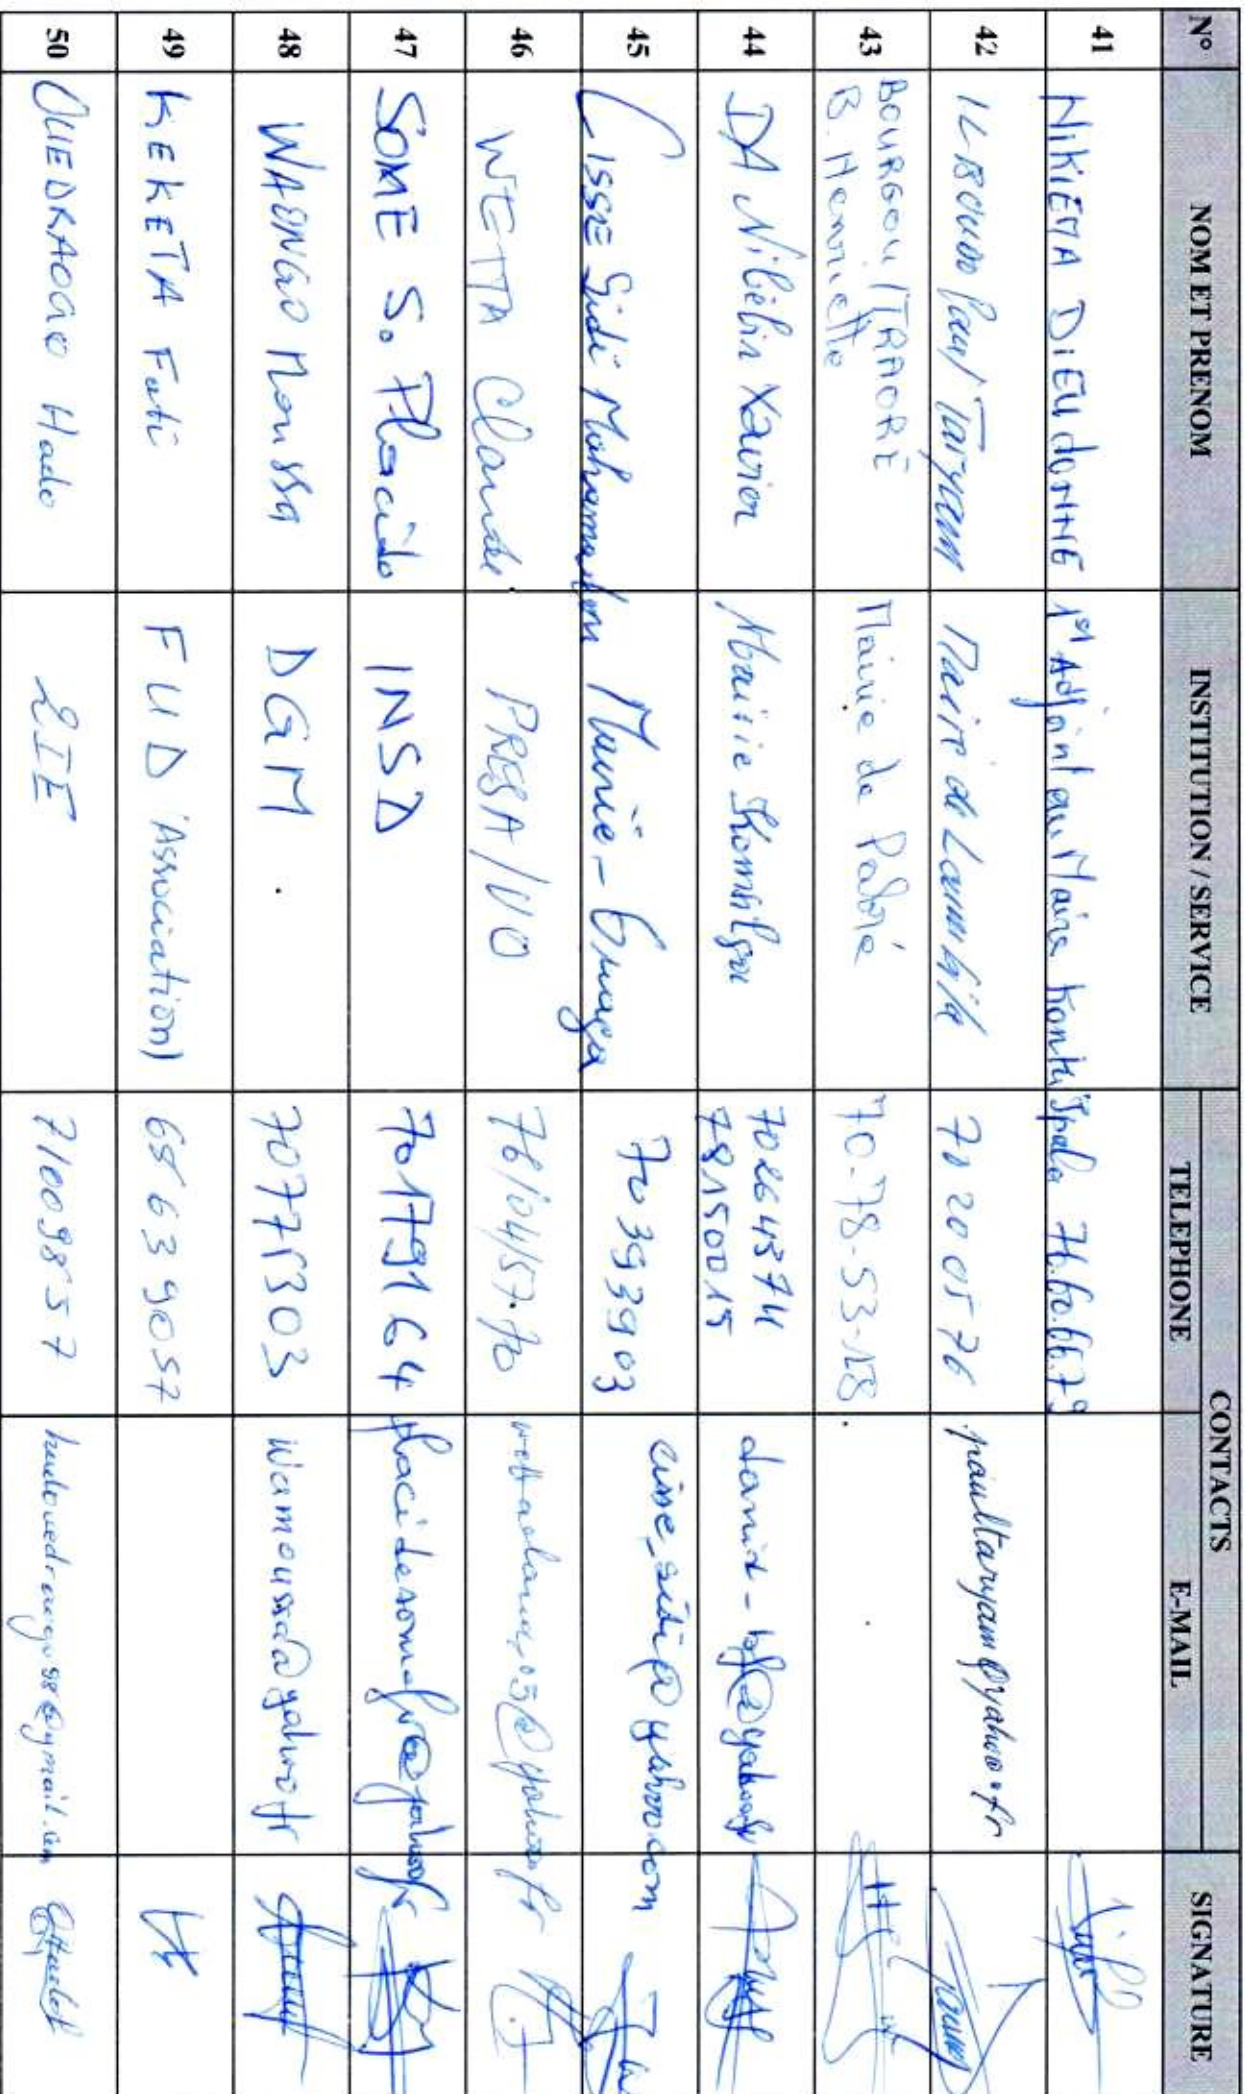 N° NOM ET PRENOM INSTITUTION / SERVICE CONTACTS SIGNATURE
TELEPHONE E-MAIL
41 NIKIEMA DIEUdoNNE 1er Adjoint au Maire Komki Ipala 76.60.66.79
42 ILBOUDO Paul Taryam Mairie de Loumbila 70 20 05 76 paultaryam@yahoo.fr
43 BOURGOU/TRAORE Mairie de Pabré 70-78-53-18
B. Henriette
44 DA Nibèbin Xavier Mairie Komsilga 70264374
78150015
45 CISSE Sidi Mohamadou Mairie- 70393903 cisse_sidi@yahoo.com
46 WETTA Claude PRESA/UO 76/04/57.70
47 SOME S. Placide INSD 70179164 placidesome_fr@yahoo.fr
48 WAONGO Moussa DGM 70771303 wamoussa@yahoo.fr
49 KEKETA Fati FUD (Association) 68639057
50 OUEDRAOGO Hado 2IE 71009857 hadouedraogo98@gmail.com